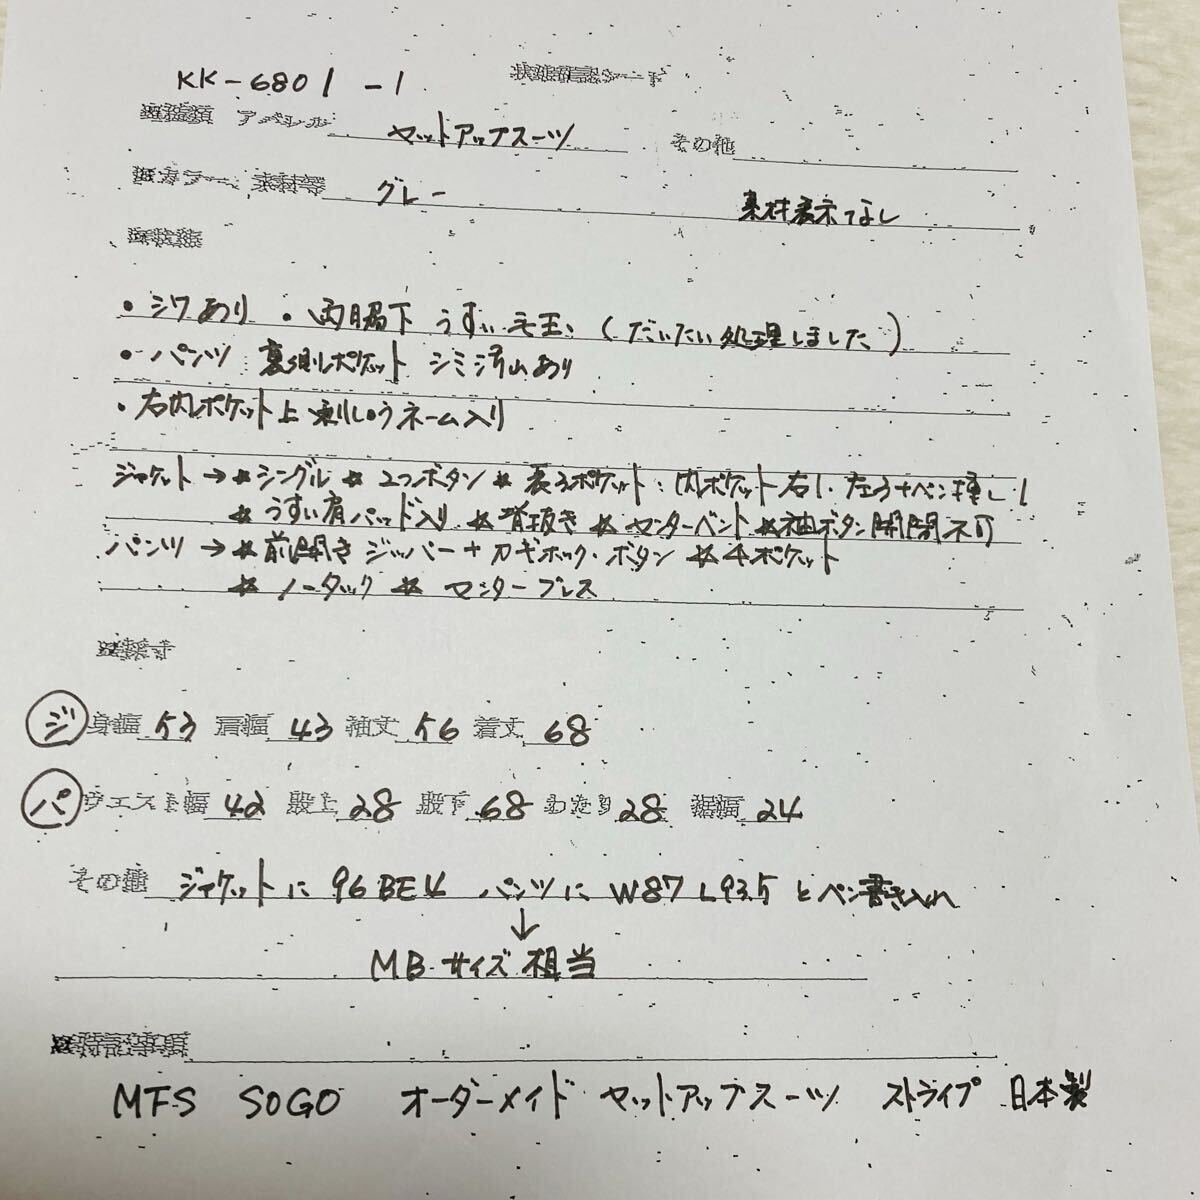 KK-6801 -1
状態確認シート
アパレル セットアップスーツ その他
カラー 素材等 グレー 素材表示なし
・シワあり ・両脇下 うすい毛玉 (だいたい処理しました)
・パンツ 裏側ポケット シミ汚れあり
・右内ポケット上 刺しゅうネーム入り
ジャケット→★シングル ★2つボタン ★表3ポケット:内ポケット右1・左3+ペン挿し1
★うすい肩パッド入り ★背抜き ★センターベント ★袖ボタン開閉不可
パンツ→★前開きジッパー+カギホック・ボタン ★4ポケット
★ノータック ★センタープレス
ジ 身幅 53 肩幅 43 袖丈 56 着丈 68
パ ウエスト幅 42 股上 28 股下 68 わたり 28 裾幅 24
その他 ジャケットに 96BE4 パンツに W87 L93.5 とペン書き入れ
↓
MBサイズ相当
特記事項
MFS SOGO オーダーメイド セットアップスーツ ストライプ 日本製